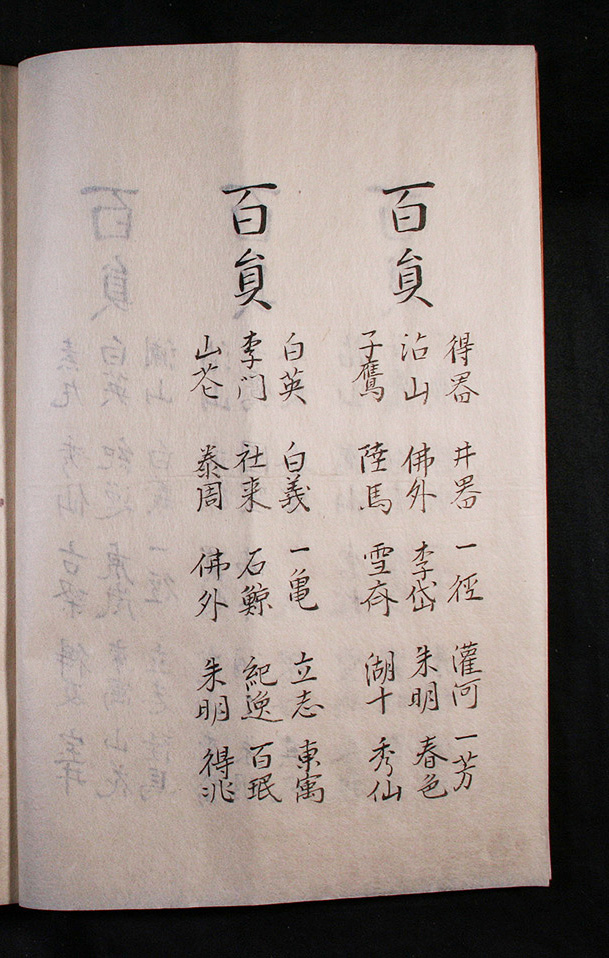 百員
得器 井器 一徑 灌河 一芳
沾山 佛外 李岱 朱明 春色
子鷹 陸馬 雪斎 湖十 秀仙
百員
白英 白義 一亀 立志 東寓
李门 社来 石鯨 紀逸 百珉
山苍 泰周 佛外 朱明 得兆